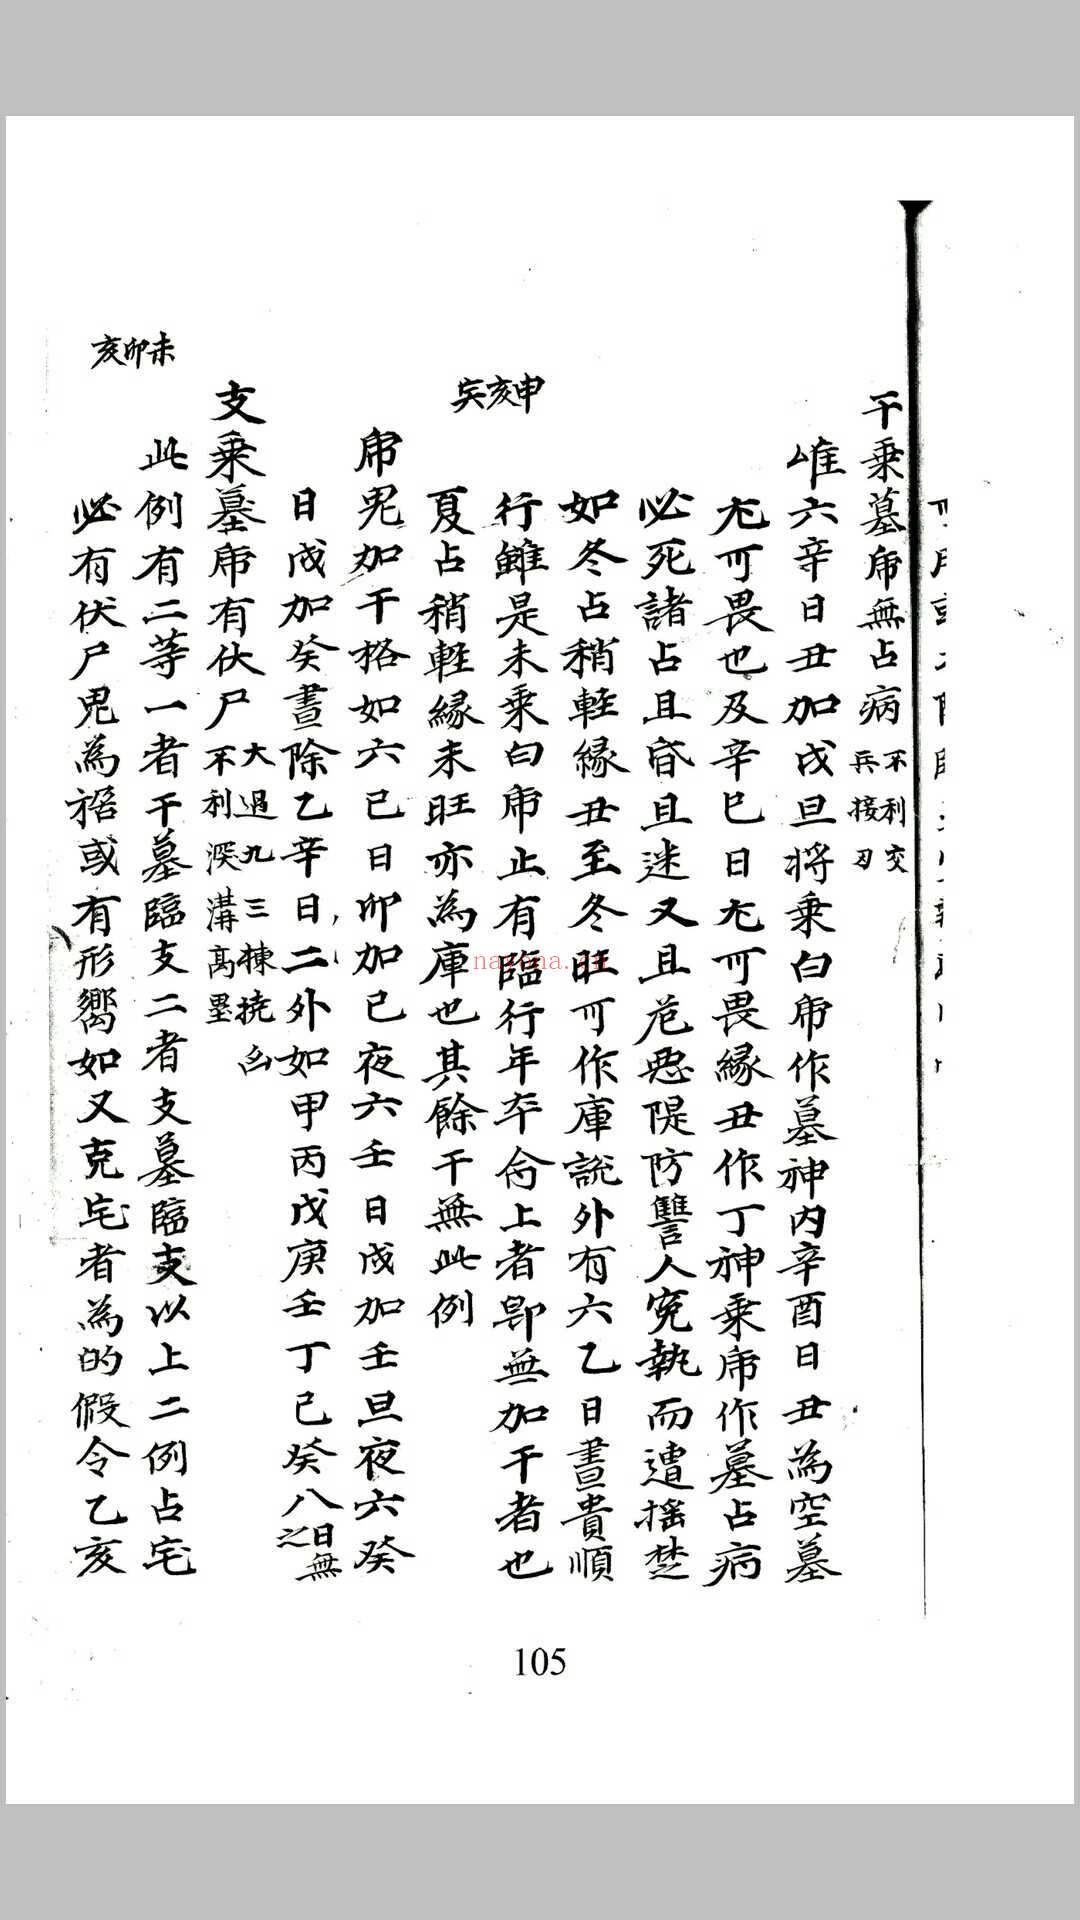 干乗墓虎無占病 不利交
兵接刃
惟六辛日丑加戌旦將乗白虎作墓神内辛酉日丑為空墓
尤可畏也及辛巳日尤可畏縁丑作丁神乗虎作墓占病
必死諸占且昏且迷又且危惡隄防讐人寃執而遭揺楚
如冬占稍軽縁丑至冬旺可作庫説外有六乙日晝貴順
行雖是未乗白虎止有臨行年本命上者即無加干者也
夏占稍軽縁未旺亦為庫也其餘干無此例
申亥寅
虎鬼加干格如六己日卯加己夜六壬日戌加壬旦夜六癸
日戌加癸晝除乙辛日二外如甲丙戊庚壬丁己癸八日無
之
支乗墓虎有伏尸 大過九三棟撓凶
不利深溝高壘
此例有二等一者干墓臨支二者支墓臨支以上二例占宅
未卯亥
必有伏尸鬼為祸或有形嚮如又克宅者為的假令乙亥
105
nayona.cn